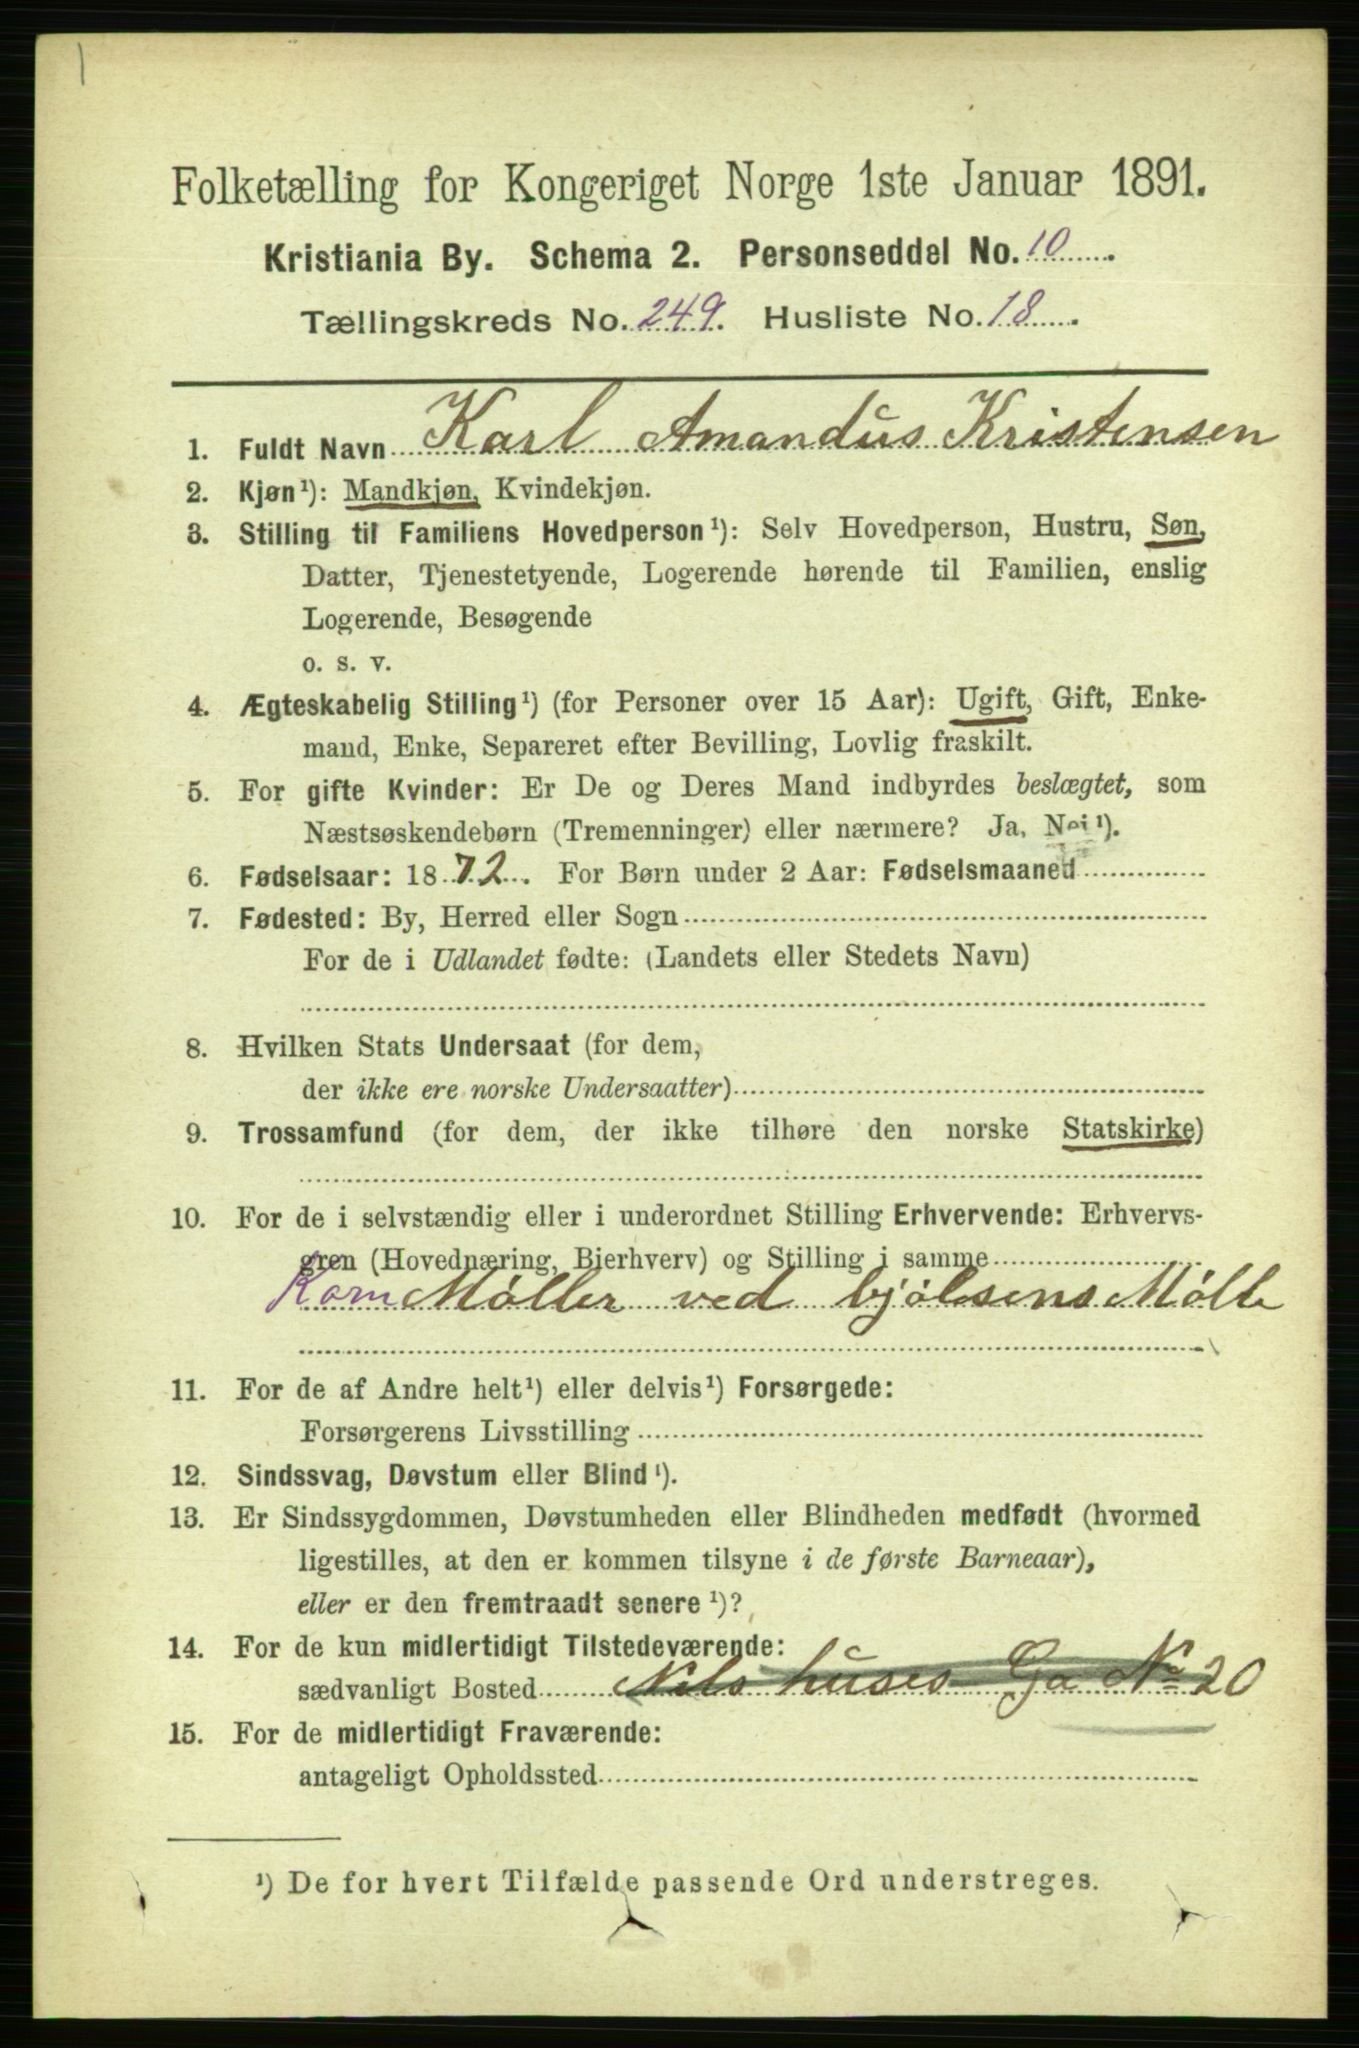 Folketælling for Kongeriget Norge 1ste Januar 1891.
Kristiania By. Schema 2. Personseddel No. 10
Tællingskreds No. 249. Husliste No. 18
1. Fuldt Navn Karl Amandus Kristensen
2. Kjøn¹): Mandkjøn, Kvindekjøn.
3. Stilling til Familiens Hovedperson¹): Selv Hovedperson, Hustru, Søn,
Datter, Tjenestetyende, Logerende hørende til Familien, enslig
Logerende, Besøgende
o. s. v.
4. Ægteskabelig Stilling¹) (for Personer over 15 Aar): Ugift, Gift, Enke-
mand, Enke, Separeret efter Bevilling, Lovlig fraskilt.
5. For gifte Kvinder: Er De og Deres Mand indbyrdes beslægtet, som
Næstsøskendebørn (Tremenninger) eller nærmere? Ja, Nei¹).
6. Fødselsaar: 1872. For Børn under 2 Aar: Fødselsmaaned
7. Fødested: By, Herred eller Sogn
For de i Udlandet fødte: (Landets eller Stedets Navn)
8. Hvilken Stats Undersaat (for dem,
der ikke ere norske Undersaatter)
9. Trossamfund (for dem, der ikke tilhøre den norske Statskirke)
10. For de i selvstændig eller i underordnet Stilling Erhvervende: Erhvervs-
gren (Hovednæring, Bierhverv) og Stilling i samme
Korn Møller ved bjølsens Mølle
11. For de af Andre helt¹) eller delvis¹) Forsørgede:
Forsørgerens Livsstilling
12. Sindssvag, Døvstum eller Blind¹).
13. Er Sindssygdommen, Døvstumheden eller Blindheden medfødt (hvormed
ligestilles, at den er kommen tilsyne i de første Barneaar),
eller er den fremtraadt senere¹)?
14. For de kun midlertidigt Tilstedeværende:
sædvanligt Bosted Nils huses Ga No 20
15. For de midlertidigt Fraværende:
antageligt Opholdssted
¹) De for hvert Tilfælde passende Ord understreges.